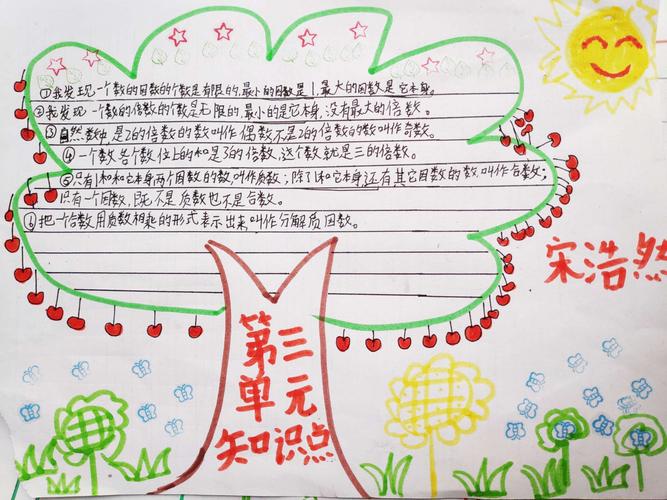 ①我发现一个数的因数的个数是有限的,最小的因数是1,最大的因数是它本身。
②我发现一个数的倍数的个数是无限的,最小的是它本身,没有最大的倍数。
③自然数中,是2的倍数的数叫作偶数,不是2的倍数的数叫作奇数。
④一个数各个数位上的和是3的倍数,这个数就是三的倍数。
⑤只有1和和它本身两个因数的数,叫作质数;除了1和它本身还有其它因数的数,叫作合数;
只有一个因数,既不是质数也不是合数。
⑥把一个合数用质数相乘的形式表示出来,叫作分解质因数。
宋浩然
第三
单元
知识点